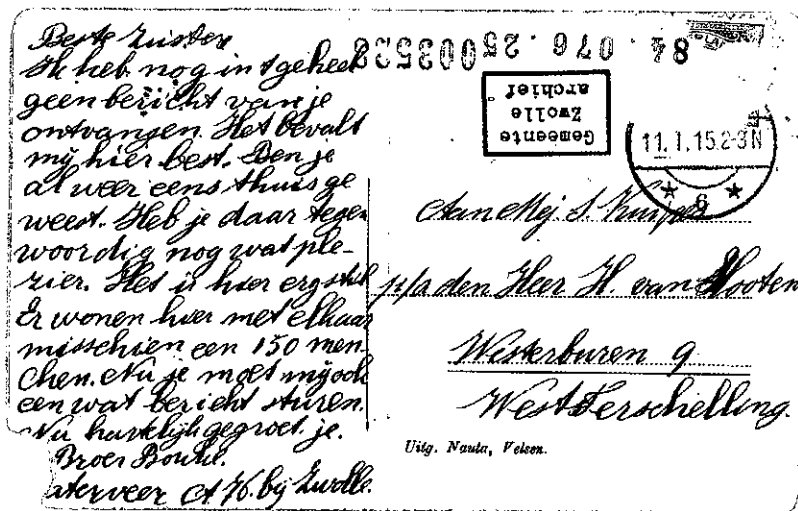 Beste Zuster
Ik heb nog in 't geheel
geen bericht van je
ontvangen. Het bevalt
mij hier best. Ben je
al weer eens thuis ge
weest. Heb je daar tegen
woordig nog wat ple-
zier. Het is hier erg stil
Er wonen hier met elkaar
misschien een 150 men-
schen. Nu je moet mij ook
een wat bericht sturen.
Nu hartelijk gegroet je.
Broer
aterveer A 76. bij Zwolle.
84.076.25003522
Gemeente
Zwolle
archief
11.1.15.2-3N
6
Aan Mej S. Kuiper
p/a den Heer H. van Slooten
Westerburen 9
West Terschelling.
Uitg. Nauta, Velsen.